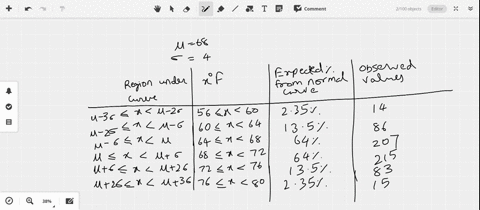 2/100 objects
Comment
μ=68
σ = 4
Region under curve | x°F | Expected % from normal curve | Observed values
μ-3σ ≤ x < μ-2σ | 56 ≤ x < 60 | 2.35% | 14
μ-2σ ≤ x < μ-σ | 60 ≤ x < 64 | 13.5% | 86
μ-σ ≤ x < μ | 64 ≤ x < 68 | 64% | 207
μ ≤ x < μ+σ | 68 ≤ x < 72 | 64% | 215
μ+σ ≤ x < μ+2σ | 72 ≤ x < 76 | 13.5% | 83
μ+2σ ≤ x < μ+3σ | 76 ≤ x < 80 | 2.35% | 15
38%